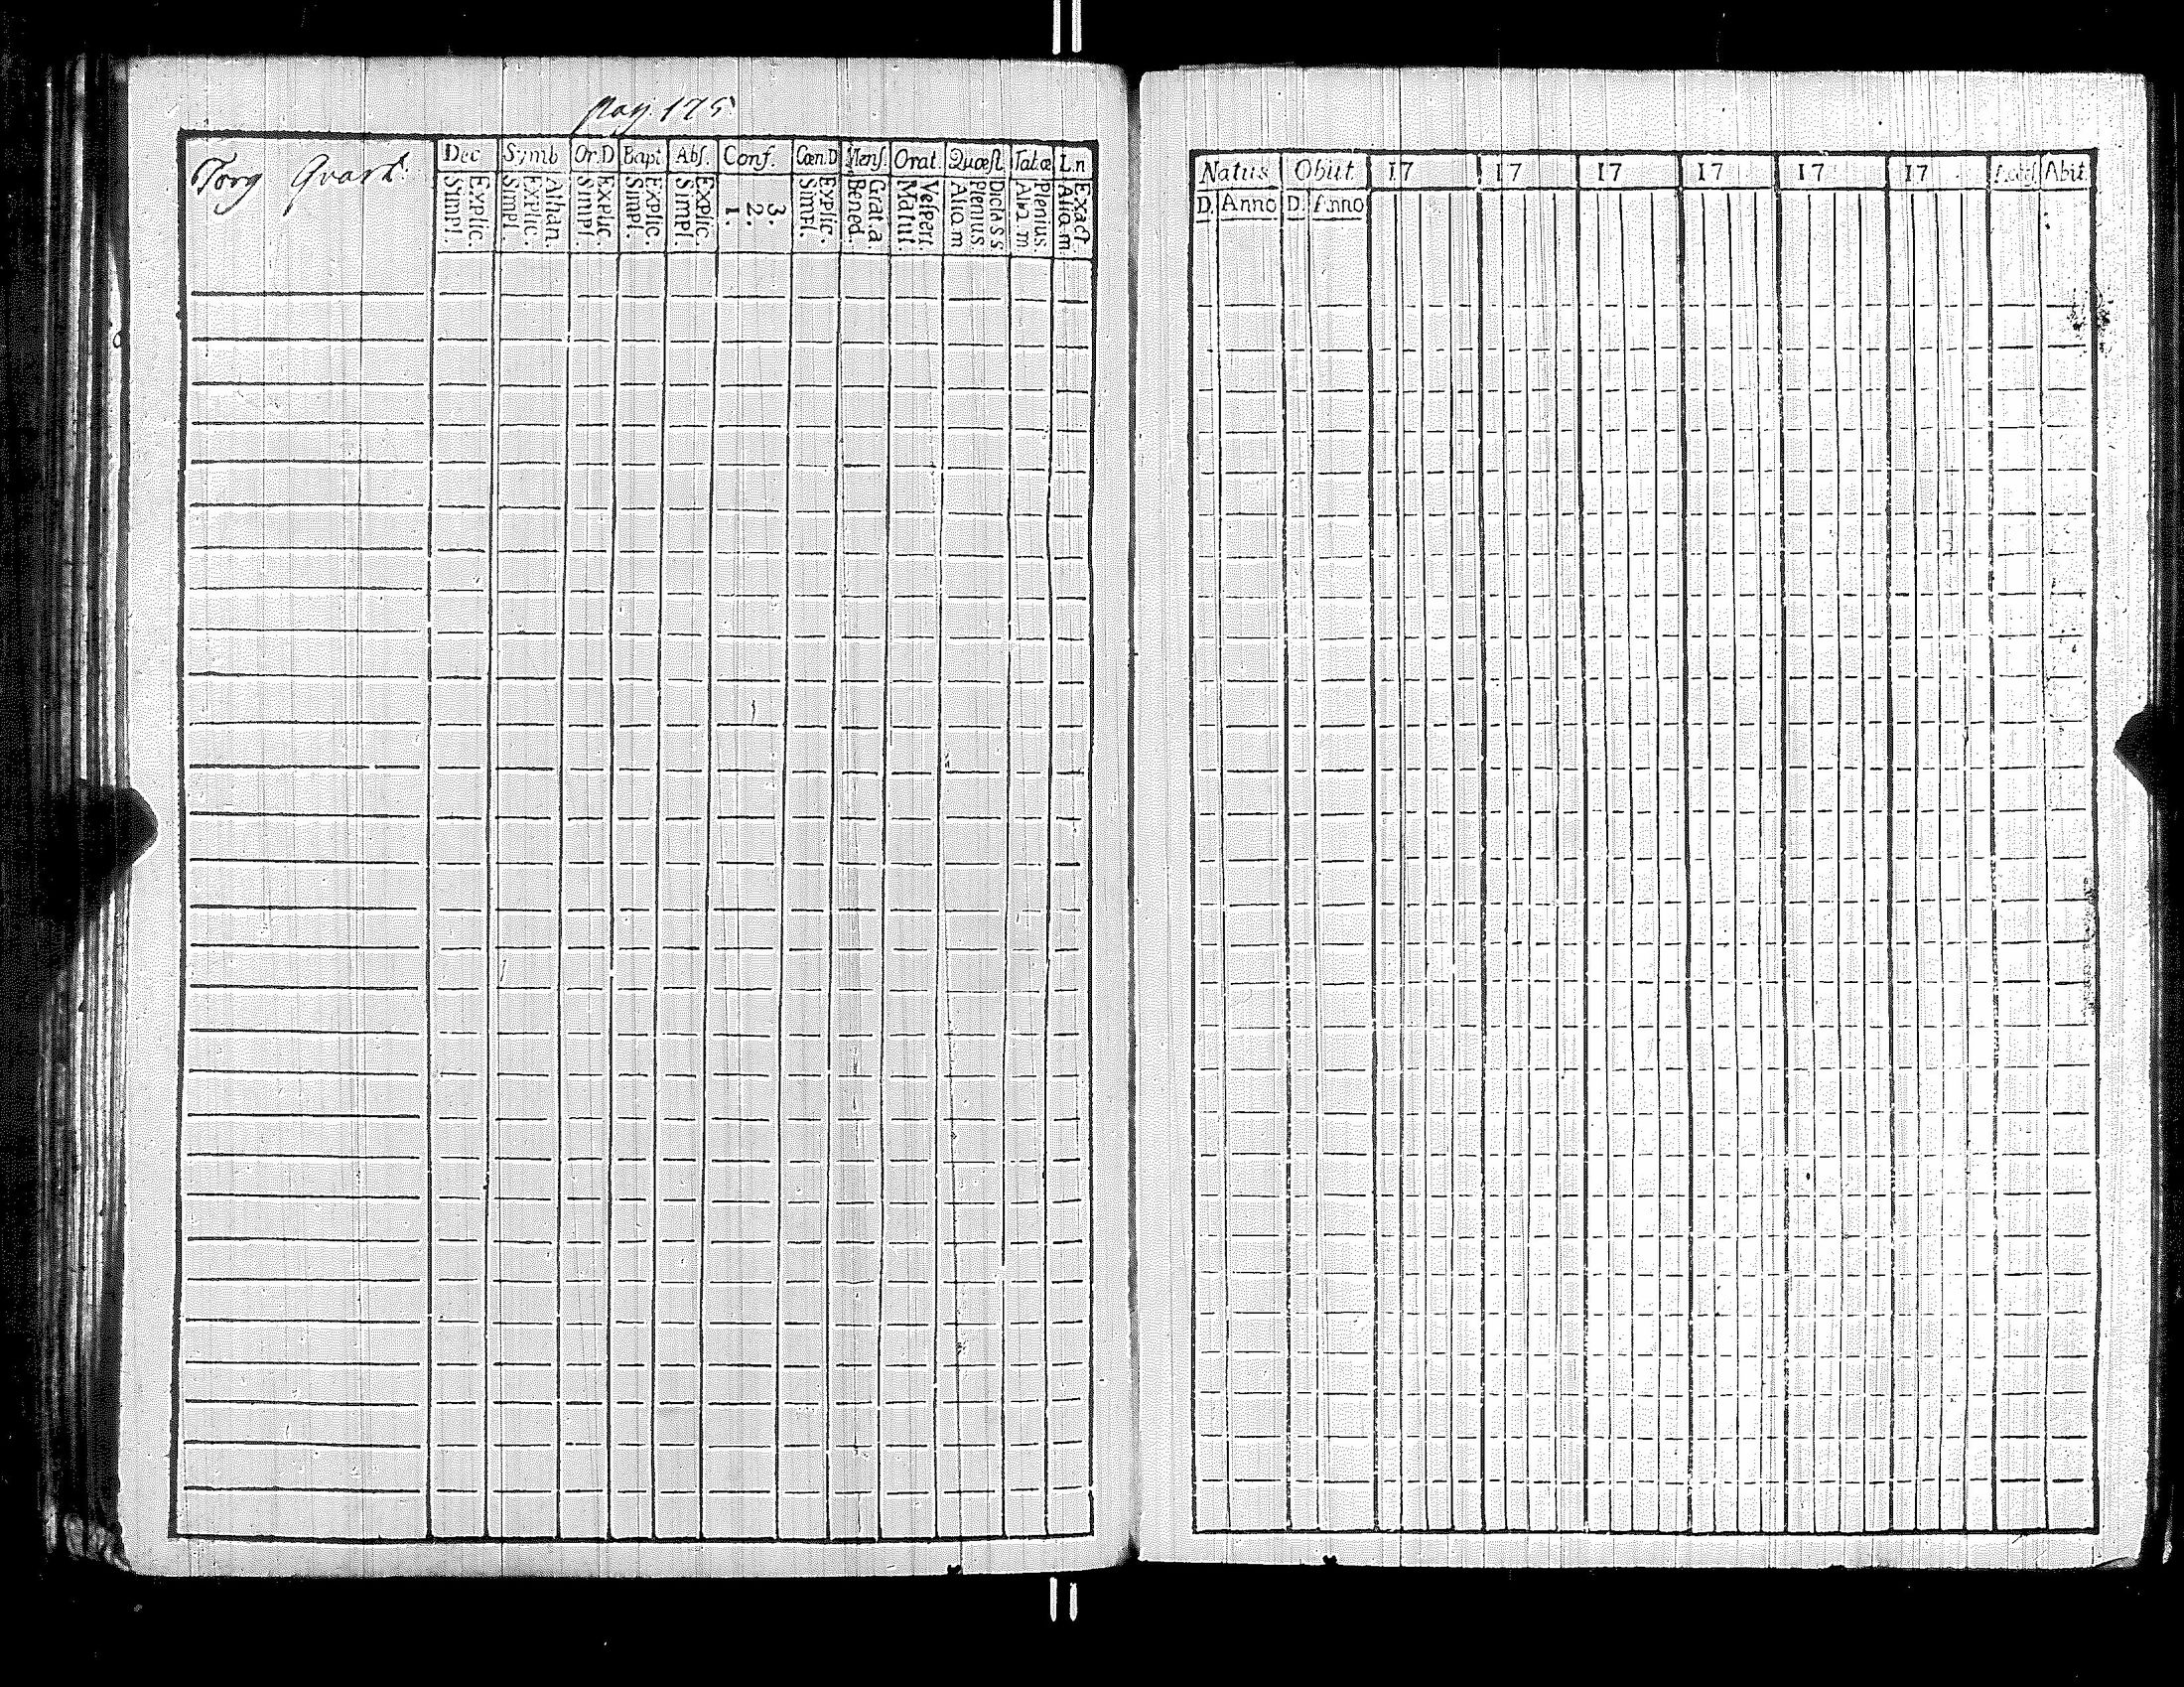 Pag. 175
Torg Qvart.
Dec Symb Or.D Bapt Abſ. Conf. Cœn.D Menſ. Orat. Quæſt Tab.æ L.n
Simpl. Explic. Simpl. Explic. Athan. Simpl. Explic. Simpl. Explic. Simpl. Explic. 1. 2. 3. Simpl. Explic. Bened. Grat.a Matut. Veſpert. Aliq.m Plenius Dicta s s Aliq.m Plenius. Aliq.m Exact.
Natus Obiit 17 17 17 17 17 17 Abiit
D. Anno D. Anno